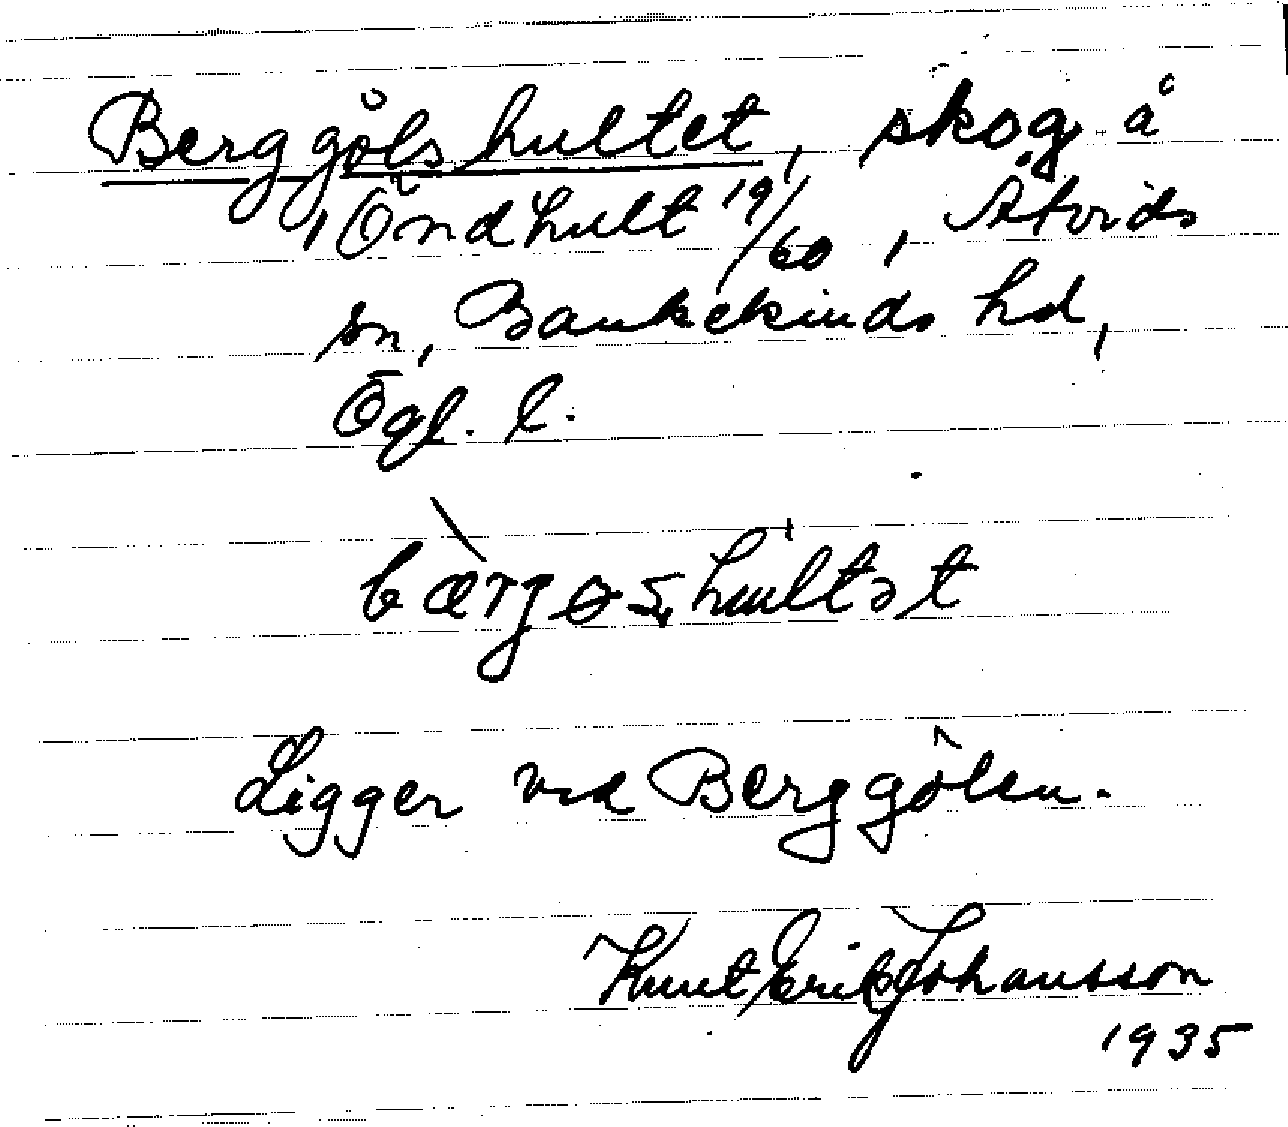 Berggölshultet, skog å
Öndhult 19/60, Åtvids
sn, Bankekinds hd,
Ögl. l.
bærgøshultət
Ligger vid Berggölen.
Knut Erik Johansson
1935